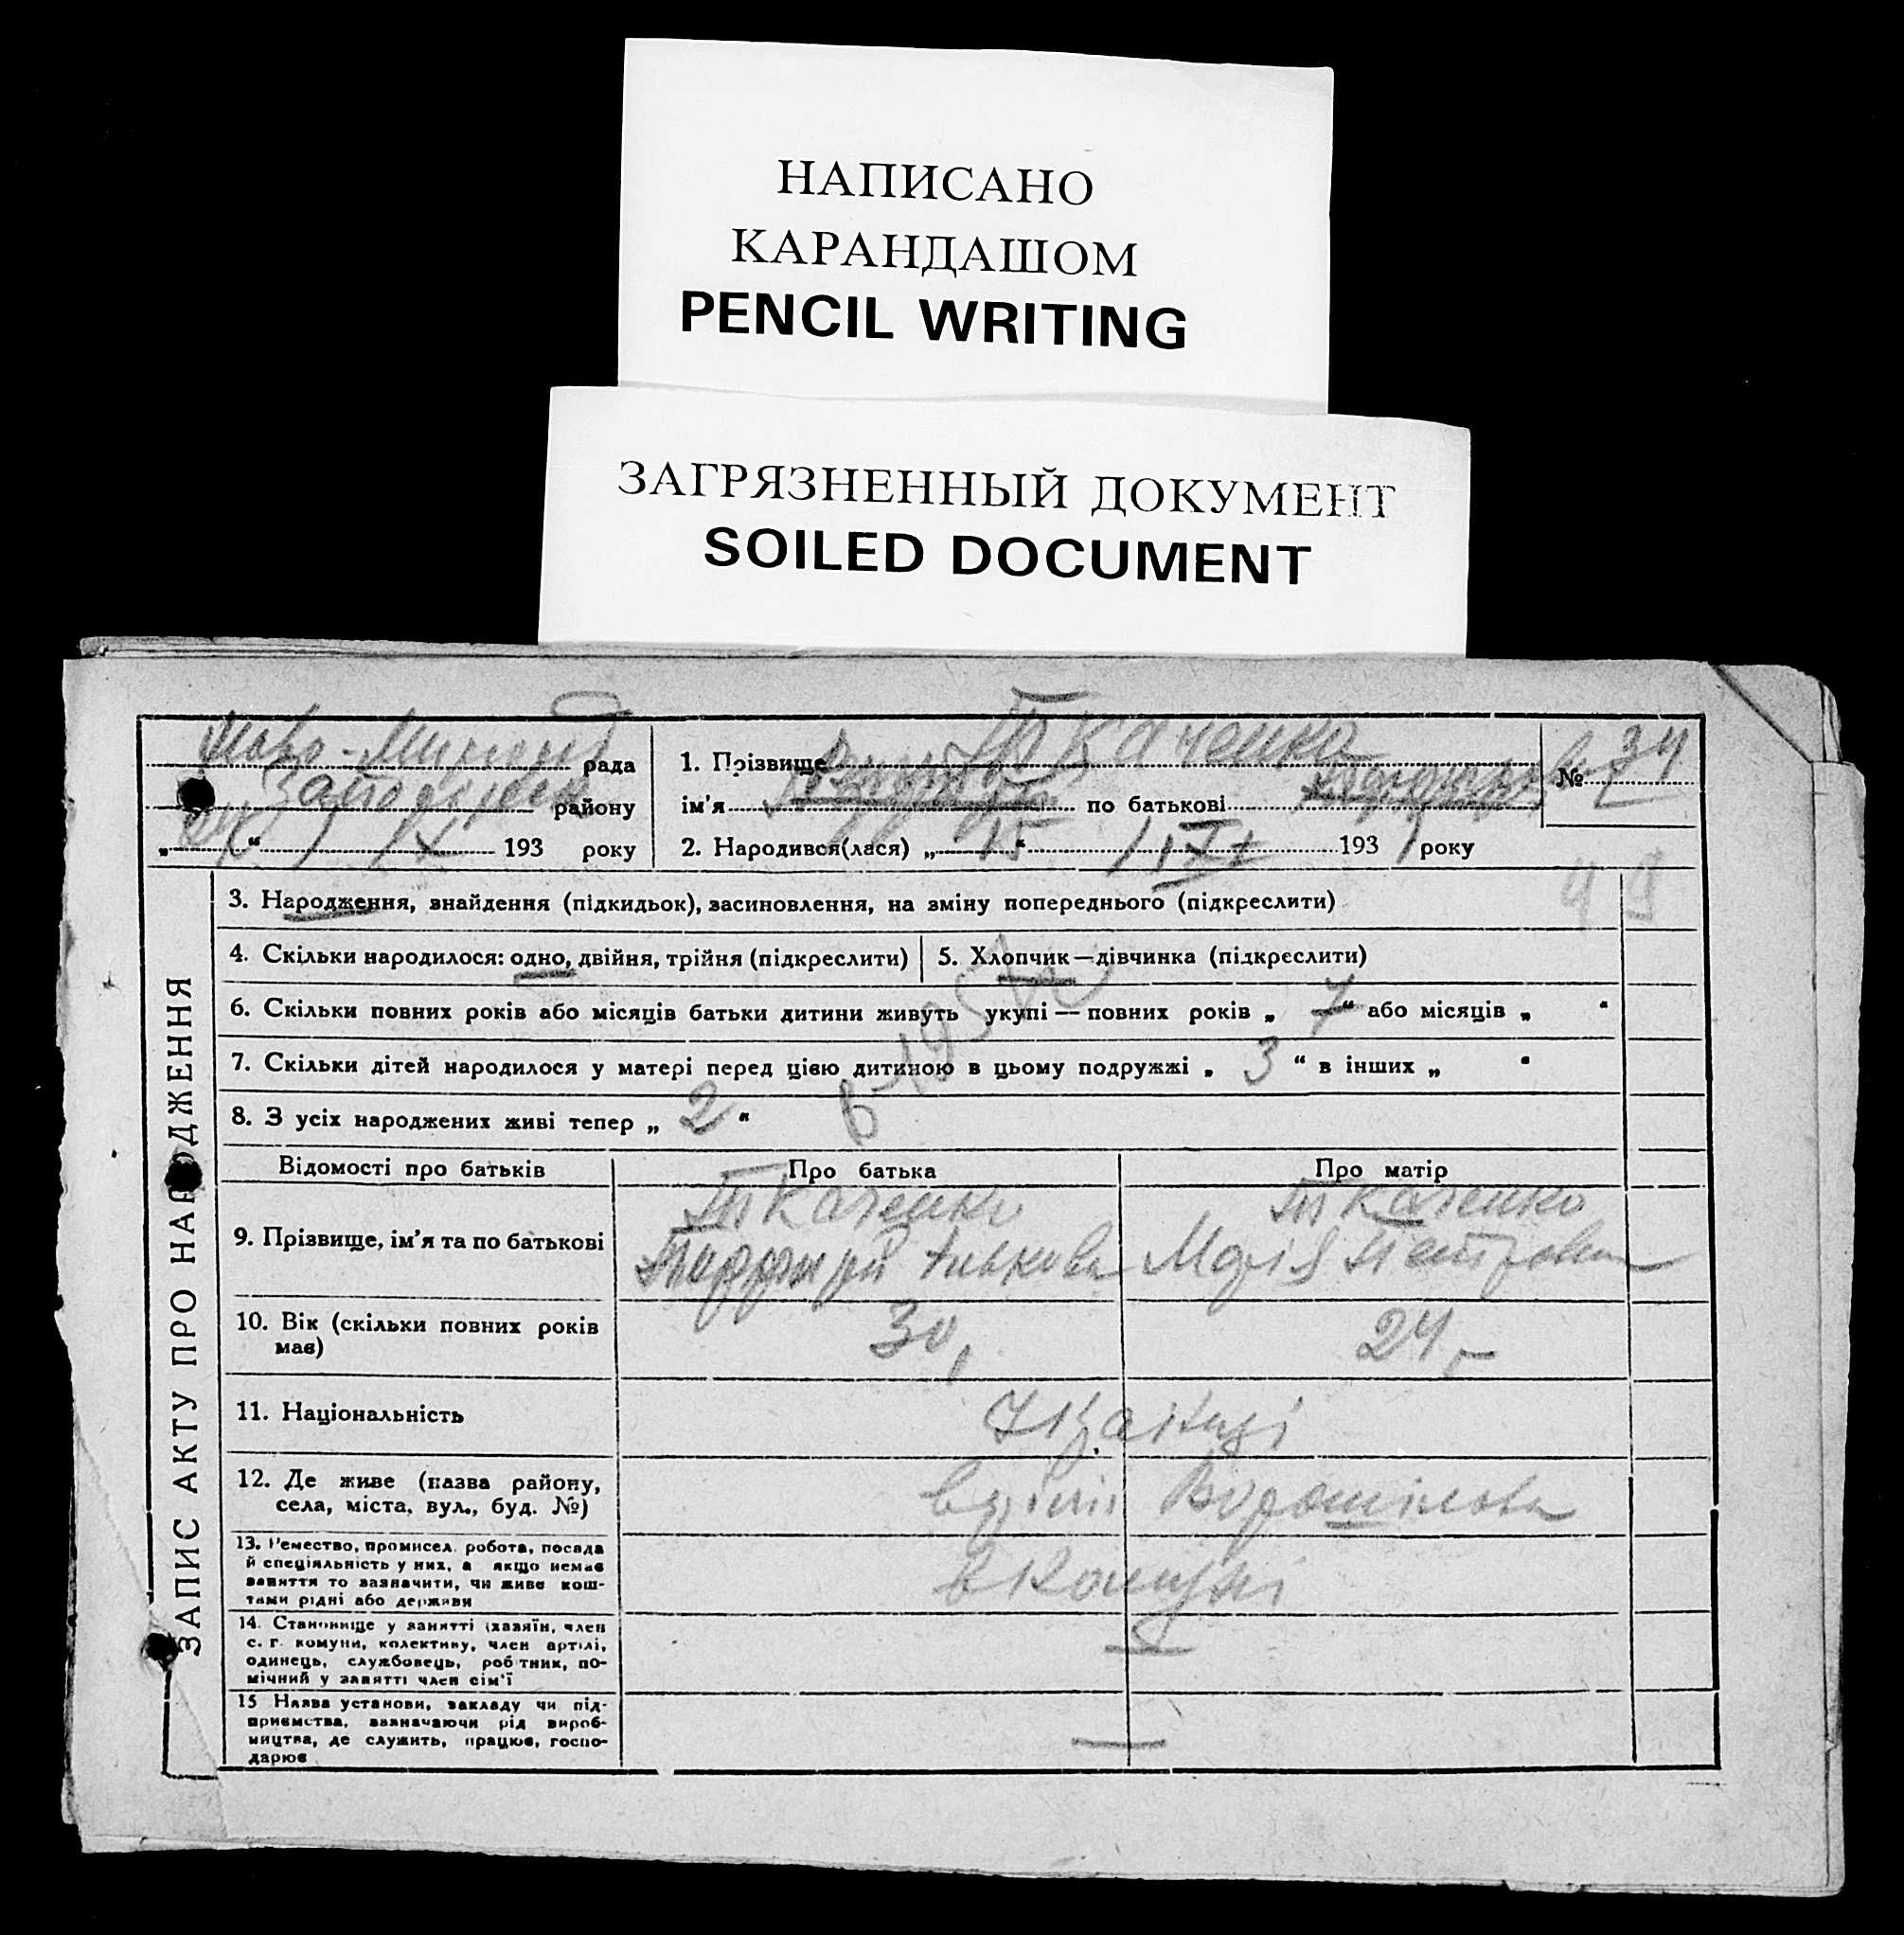 НАПИСАНО
КАРАНДАШОМ
PENCIL WRITING
ЗАГРЯЗНЕННЫЙ ДОКУМЕНТ
SOILED DOCUMENT
рада
району
„ “ IX 193 року
1. Прізвище Ткаченко
ім'я по батькові
№ 34
2. Народився(лася) „ 15 “ 1931 року
49
ЗАПИС АКТУ ПРО НАРОДЖЕННЯ
3. Народження, знайдення (підкидьок), засиновлення, на зміну попереднього (підкреслити)
4. Скільки народилося: одно, двійня, трійня (підкреслити)
5. Хлопчик—дівчинка (підкреслити)
6. Скільки повних років або місяців батьки дитини живуть укупі — повних років „ 7 “ або місяців „ “
7. Скільки дітей народилося у матері перед цією дитиною в цьому подружжі „ 3 “ в інших „ “
8. З усіх народжених живі тепер „ 2 “
Відомості про батьків
Про батька
Про матір
9. Прізвище, ім'я та по батькові
Ткаченко
Ткаченко
Марія Петровна
10. Вік (скільки повних років
має)
30
24
11. Національність
Українці
12. Де живе (назва району,
села, міста, вул., буд. №)
Ворошилова
13. Ремество, промисел. робота, посада
й спеціяльність у них, а якщо немає
заняття то зазначити, чи живе кош-
тами рідні або держави
в Комуні
14. Становище у занятті (хазяїн, член
с. г. комуни, колективу, член артілі,
одинець, службовець, робітник, по-
мічний у занятті член сім'ї
15 Назва установи, закладу чи під-
приємства, зазначаючи рід вироб-
ництва, де служить, працює, госпо-
дарює